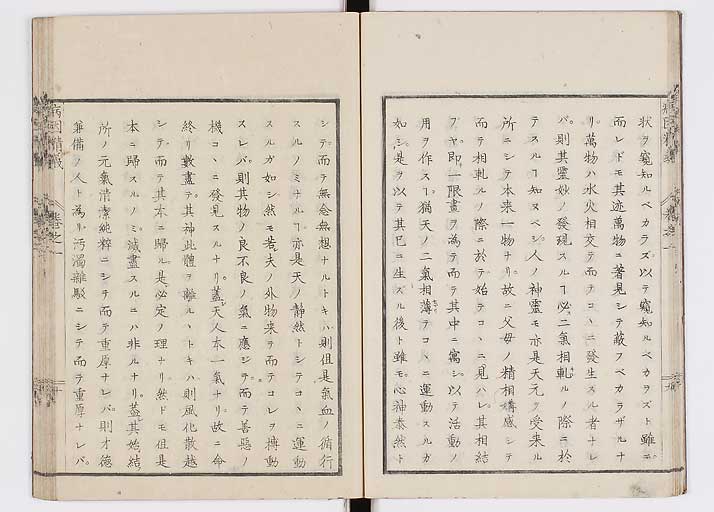 状ヲ窺知ルベカラズ以テ窺知ルベカラズト雖ニ
而レドモ其迹萬物ニ著見シテ蔽フベカラザルナ
リ萬物ハ水火相交テ而テコヽニ發生スル者ナレ
バ則其靈妙ノ發現スルヿ必二氣相軋ルノ際ニ於
テスルヿ知ヌベシ人ノ神靈モ亦是天元ヲ受来ル
所ニシテ本来一物ナリ故ニ父母ノ精相搆感シテ
而テ相軋ルノ際ニ於テ始テコヽニ見ハレ其相結
ブヤ即一限畫ヲ為テ而テ其中ニ寓シ以テ活動ノ
用ヲ作スヿ猶天ノ二氣相薄テコヽニ運動スルガ
如シ是ヲ以テ其已ニ生ズル後ト雖モ心神泰然ト
シテ而テ無念無想ナルトキハ則但是氣血ノ循行
スルノミナルヿ亦是天ノ静然トシテコヽニ運動
スルガ如シ然モ若夫ノ外物来ヲ而テコレヲ摶動
スレバ則其物ノ良不良ノ氣ニ應ジテ而テ善惡ノ
機コヽニ發見スルナリ蓋天人本一氣ナリ故ニ命
終リ數盡テ其神此體ヲ離ルヽトキハ則風化散越
シテ而テ其本ニ歸ル是必定ノ理ナリ然ドモ但是
本ニ歸スルノミ滅盡スルニハ非ルナリ蓋其始結
所ノ元氣清潔純粹ニシテ而テ重厚ナレバ則才德
兼備ノ人ト為リ汚濁雜駁ニシテ而テ重厚ナレバ
病因精義 巻之一